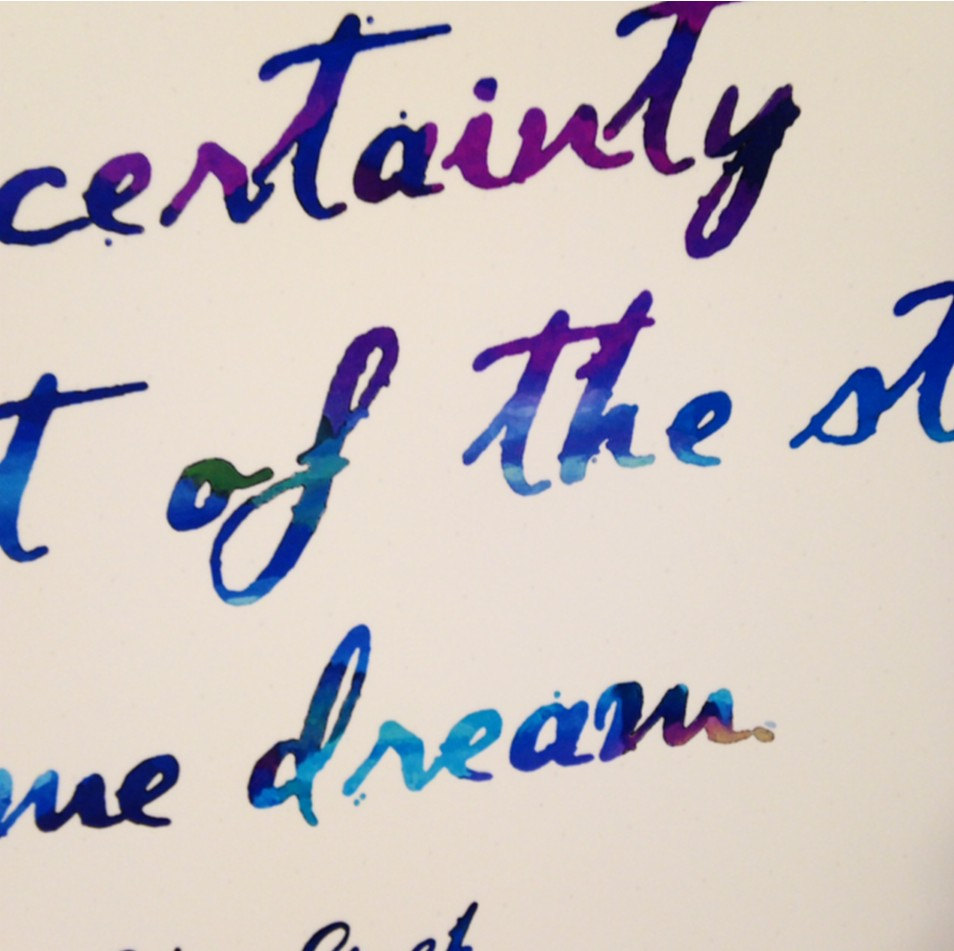 certainty
t of the st
me dream.